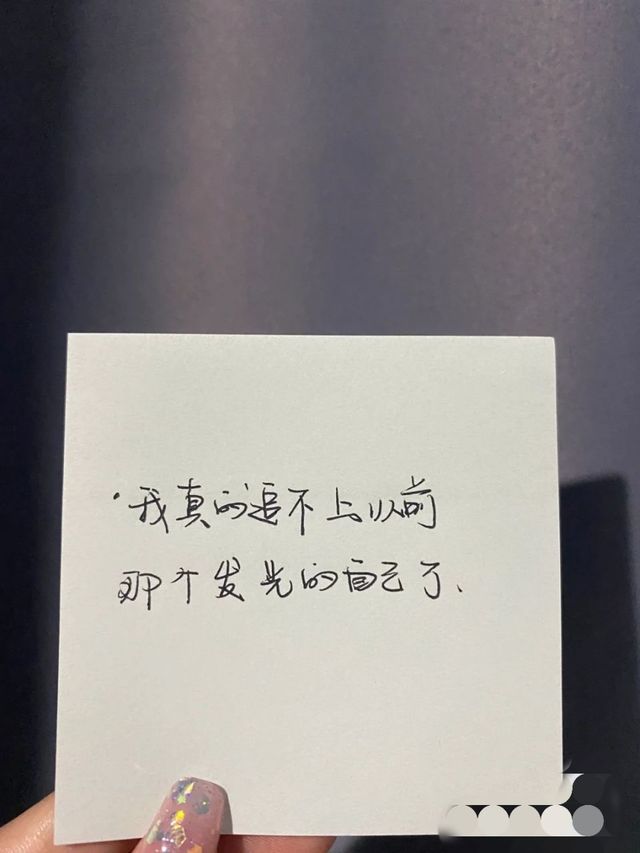 ·我真的追不上以前
那个发光的自己了.